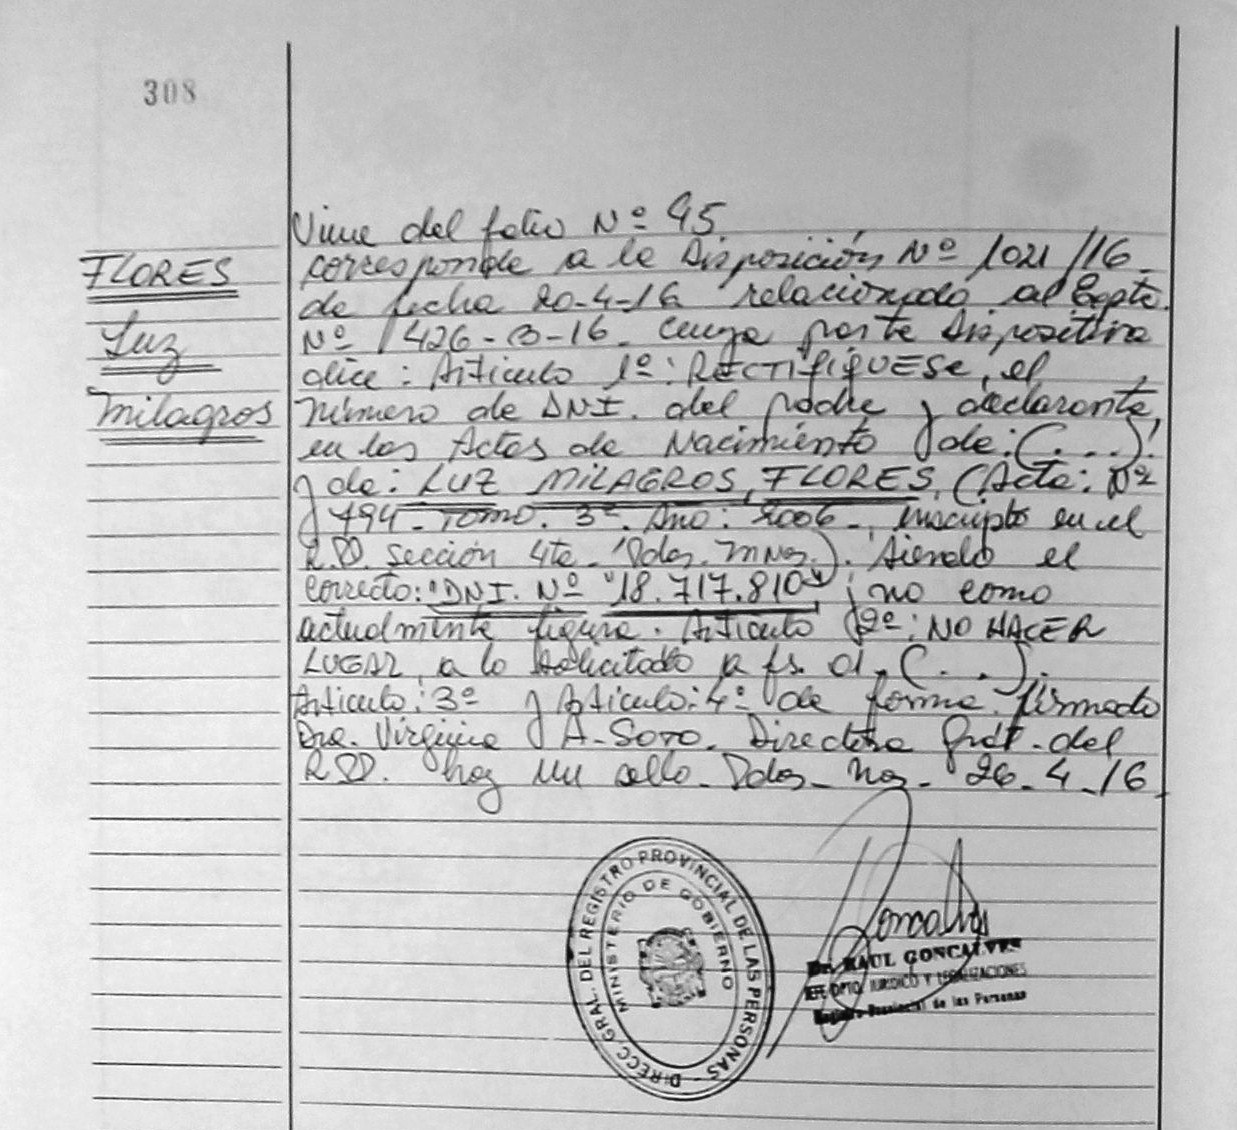 308
Viene del folio Nº 95
FLORES
Luz
Milagros
corresponde a la Disposición Nº 1021/16
de fecha 20-4-16 relacionado al Expte.
Nº 1426-B-16. cuya parte dispositiva
dice: Artículo 1º: RECTIFIQUESE, el
número de DNI. del padre y declarante
en las Actas de Nacimiento de: (...)!
y de: LUZ MILAGROS, FLORES, (Acta: Nº
794- Tomo. 3º. Año: 2006-, inscripto en el
R.P. Sección 4ta. Pdas. Mnes.). Siendo el
correcto: "DNI. Nº "18.717.810" y no como
actualmente figura. Artículo 2º: NO HACER
LUGAR, a lo solicitado a fs. 01. (...).
Artículo: 3º y Artículo: 4º de forma. firmado
Dra. Virginia A. Soto. Directora Gral. del
R.P. hay un sello. Pdas. 26-4-16
DIRECC. GRAL. DEL REGISTRO PROVINCIAL DE LAS PERSONAS
MINISTERIO DE GOBIERNO
Goncalves
Dr. RAUL GONCALVES
JEFE DPTO. JURIDICO Y LEGALIZACIONES
Registro Provincial de las Personas